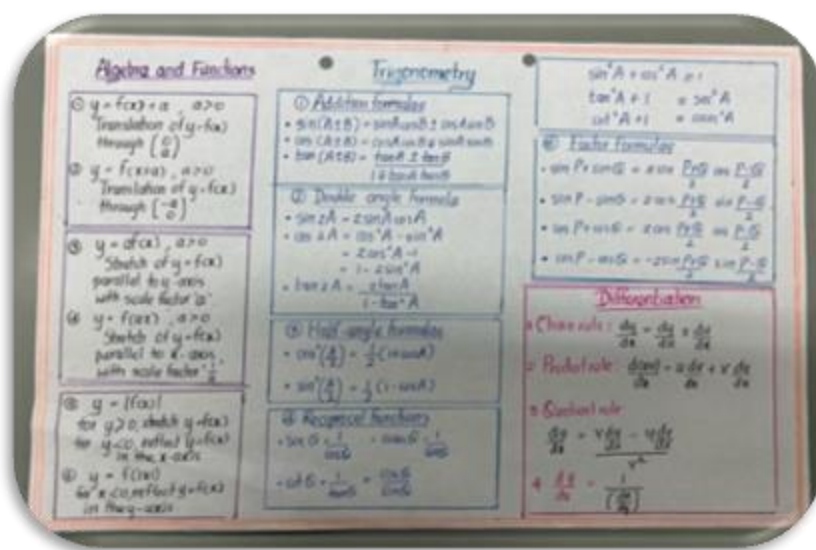 Algebra and Functions
① y = f(x) + a , a>0
Translation of y=f(x)
through (0 a)
② y = f(x+a) , a>0
Translation of y=f(x)
through (-a 0)
③ y = af(x) , a>0
Stretch of y=f(x)
parallel to y-axis
with scale factor 'a'
④ y = f(ax) , a>0
Stretch of y=f(x)
parallel to x-axis,
with scale factor 1/a
⑤ y = |f(x)|
for y≥0, sketch y=f(x)
for y<0, reflect y=f(x)
in the x-axis
⑥ y = f(|x|)
for x<0, reflect y=f(x)
in the y-axis
Trigonometry
① Addition formulae
• sin(A±B) = sinAcosB ± cosAsinB
• cos(A±B) = cosAcosB ∓ sinAsinB
• tan(A±B) = tanA ± tanB
1 ∓ tanA tanB
② Double angle formula
• sin2A = 2sinAcosA
• cos2A = cos²A - sin²A
= 2cos²A - 1
= 1 - 2sin²A
• tan2A = 2tanA
1 - tan²A
③ Half-angle formulae
• cos²(A/2) = 1/2 (1+cosA)
• sin²(A/2) = 1/2 (1-cosA)
④ Reciprocal functions
• cotθ = 1/tanθ = cosθ/sinθ
sin²A + cos²A = 1
tan²A + 1 = sec²A
cot²A + 1
Factor Formulae
• sin P + sin Q = 2sin P+Q/2 cos P-Q/2
• sin P - sin Q = 2cos P+Q/2 sin P-Q/2
• cos P + cos Q = 2cos P+Q/2 cos P-Q/2
• cos P - cos Q = -2sin P+Q/2 sin P-Q/2
Differentiation
Chain rule :
Product rule : d(uv)/dx = u dv/dx + v du/dx
Quotient rule
dy/dx = v du/dx - u dv/dx
v²
4. dy/dx = 1
(dx/dy)